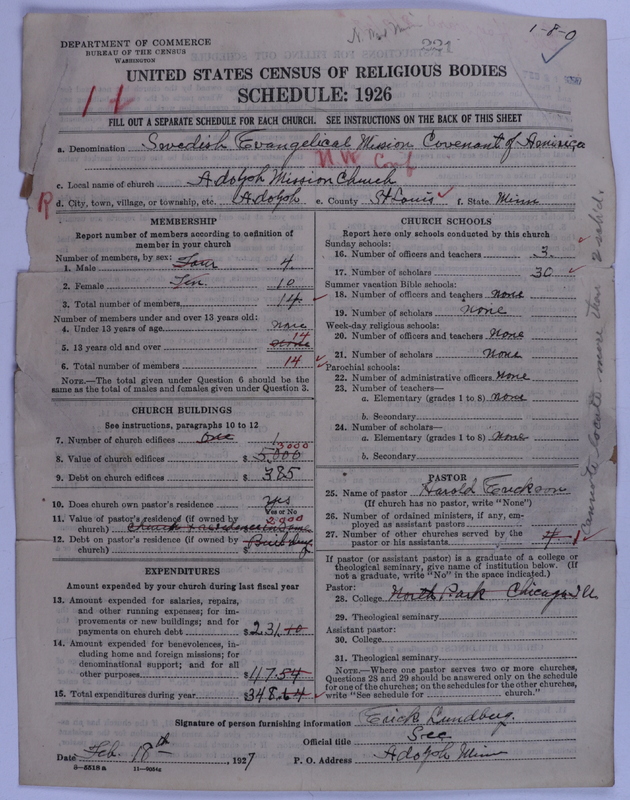 1-8-0
221
DEPARTMENT OF COMMERCE
BUREAU OF THE CENSUS
WASHINGTON
UNITED STATES CENSUS OF RELIGIOUS BODIES
SCHEDULE: 1926
FILL OUT A SEPARATE SCHEDULE FOR EACH CHURCH. SEE INSTRUCTIONS ON THE BACK OF THIS SHEET
a. Denomination Swedish Evangelical Mission Covenant of America
c. Local name of church Adolph Mission Church
R d. City, town, village, or township, etc. Adolph e. County St Louis f. State Minn
MEMBERSHIP
Report number of members according to definition of member in your church
Number of members, by sex:
1. Male Four 4
2. Female Ten 10
3. Total number of members 14
Number of members under and over 13 years old:
4. Under 13 years of age none
14
5. 13 years old and over
6. Total number of members 14
NOTE.—The total given under Question 6 should be the
same as the total of males and females given under Question 3.
CHURCH BUILDINGS
See instructions, paragraphs 10 to 12
7. Number of church edifices one 1
3000
8. Value of church edifices $ 5,000
9. Debt on church edifices $ 385
10. Does church own pastor's residence? yes
Yes or No
11. Value of pastor's residence (if owned by 2,000
church) Church & residence in same
12. Debt on pastor's residence (if owned by Building
church) $
EXPENDITURES
Amount expended by your church during last fiscal year
13. Amount expended for salaries, repairs,
and other running expenses; for im-
provements or new buildings; and for
payments on church debt $ 231.10
14. Amount expended for benevolences, in-
cluding home and foreign missions; for
denominational support; and for all
other purposes $ 117.54
15. Total expenditures during year $ 348.64
CHURCH SCHOOLS
Report here only schools conducted by this church
Sunday schools:
16. Number of officers and teachers 3
17. Number of scholars 30
Summer vacation Bible schools:
18. Number of officers and teachers none
19. Number of scholars none
Week-day religious schools:
20. Number of officers and teachers none
21. Number of scholars none
Parochial schools:
22. Number of administrative officers none
23. Number of teachers—
a. Elementary (grades 1 to 8) none
b. Secondary
24. Number of scholars—
a. Elementary (grades 1 to 8) none
b. Secondary
PASTOR
25. Name of pastor Harold Erickson
(If church has no pastor, write "None")
26. Number of ordained ministers, if any, em-
ployed as assistant pastors
27. Number of other churches served by the
pastor or his assistants 4 1
If pastor (or assistant pastor) is a graduate of a college or
theological seminary, give name of institution below. (If
not a graduate, write "No" in the space indicated.)
Pastor:
28. College North Park Chicago Ill
29. Theological seminary
Assistant pastor:
30. College
31. Theological seminary
NOTE.—Where one pastor serves two or more churches,
Questions 28 and 29 should be answered only on the schedule
for one of the churches; on the schedules for the other churches,
write "See schedule for church."
cannot locate more than 2 sched.
Signature of person furnishing information Erick Lundberg.
Official title Sec
Date Feb 18th 1927 P. O. Address Adolph Minn
8-5518a 11-9034a